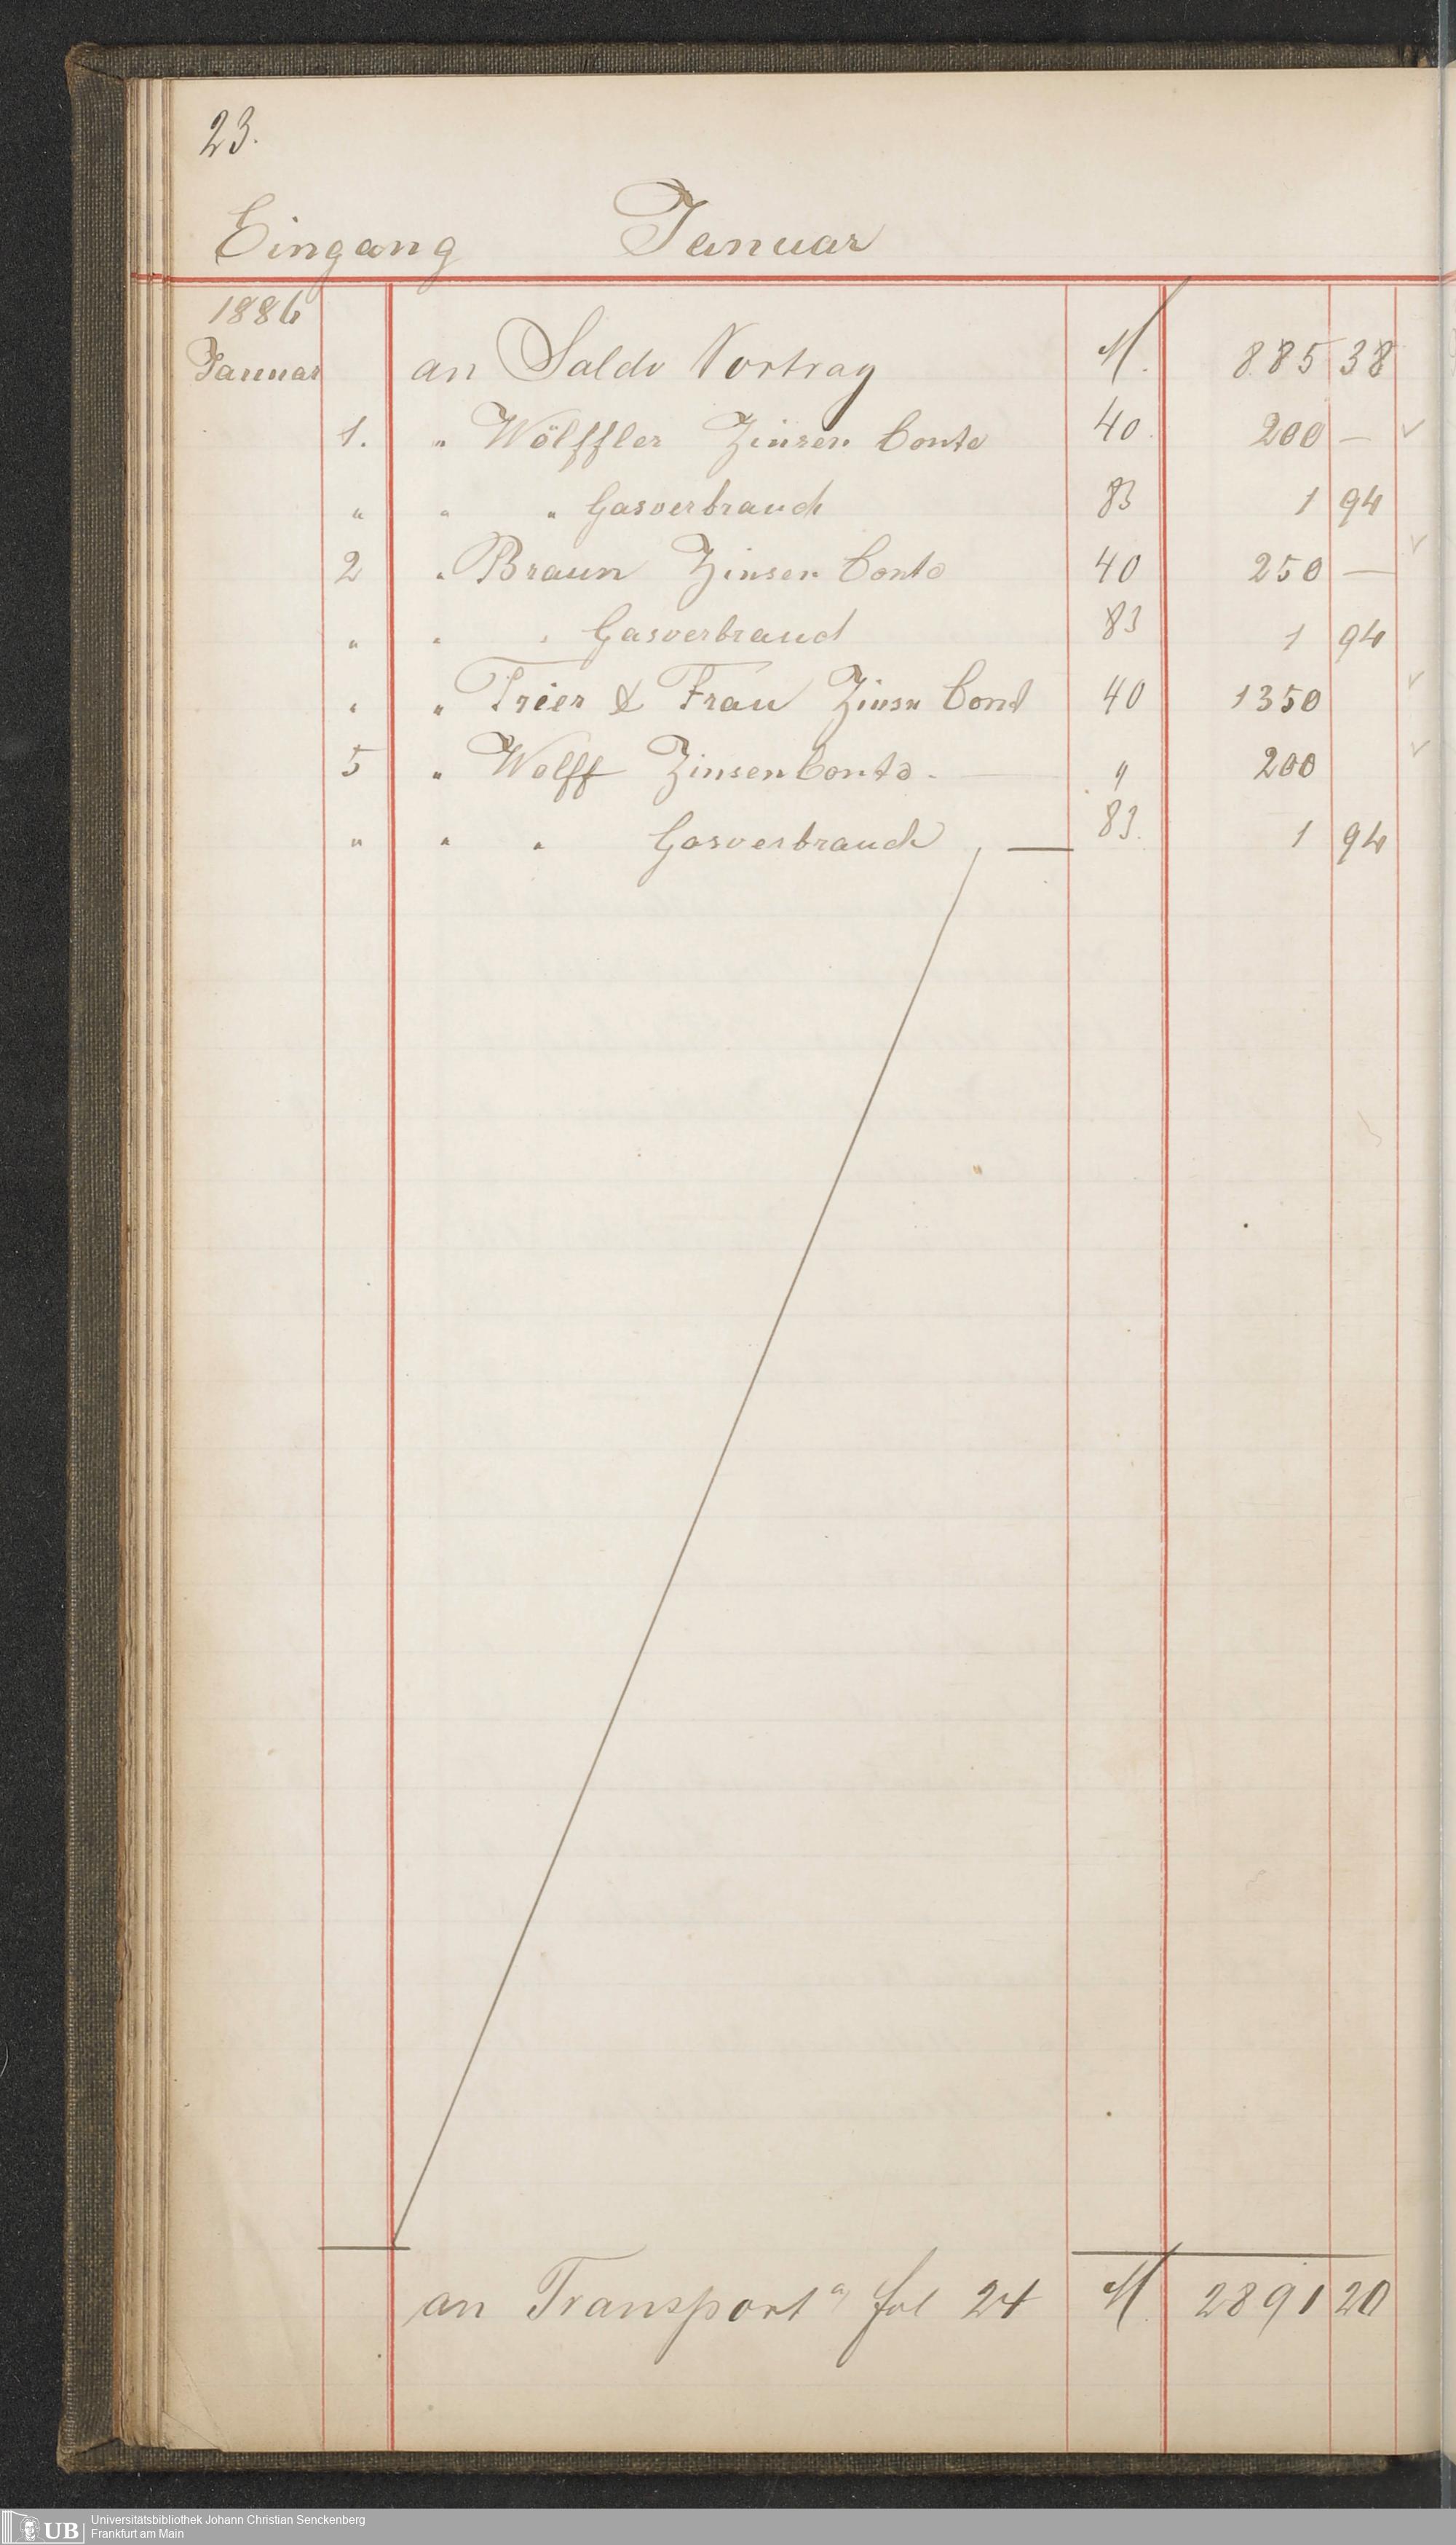 23.
Eingang Januar
1886
Januar an Saldo Vortrag M. 885 38
1. " Wölffler Zinsen Conto 40 200 —
" " " Gasverbrauch 83 1 94
2 " Braun Zinsen Conto 40 250 —
" " " Gasverbrauch 83 1 94
" " Trier & Frau Zinsn Cont 40 1350
5 " Wolff Zinsen Conto. — " 200
" " " Gasverbrauch — 83. 1 94
an Transport a/ fol 24 M. 2891 20
UB Universitätsbibliothek Johann Christian Senckenberg
Frankfurt am Main